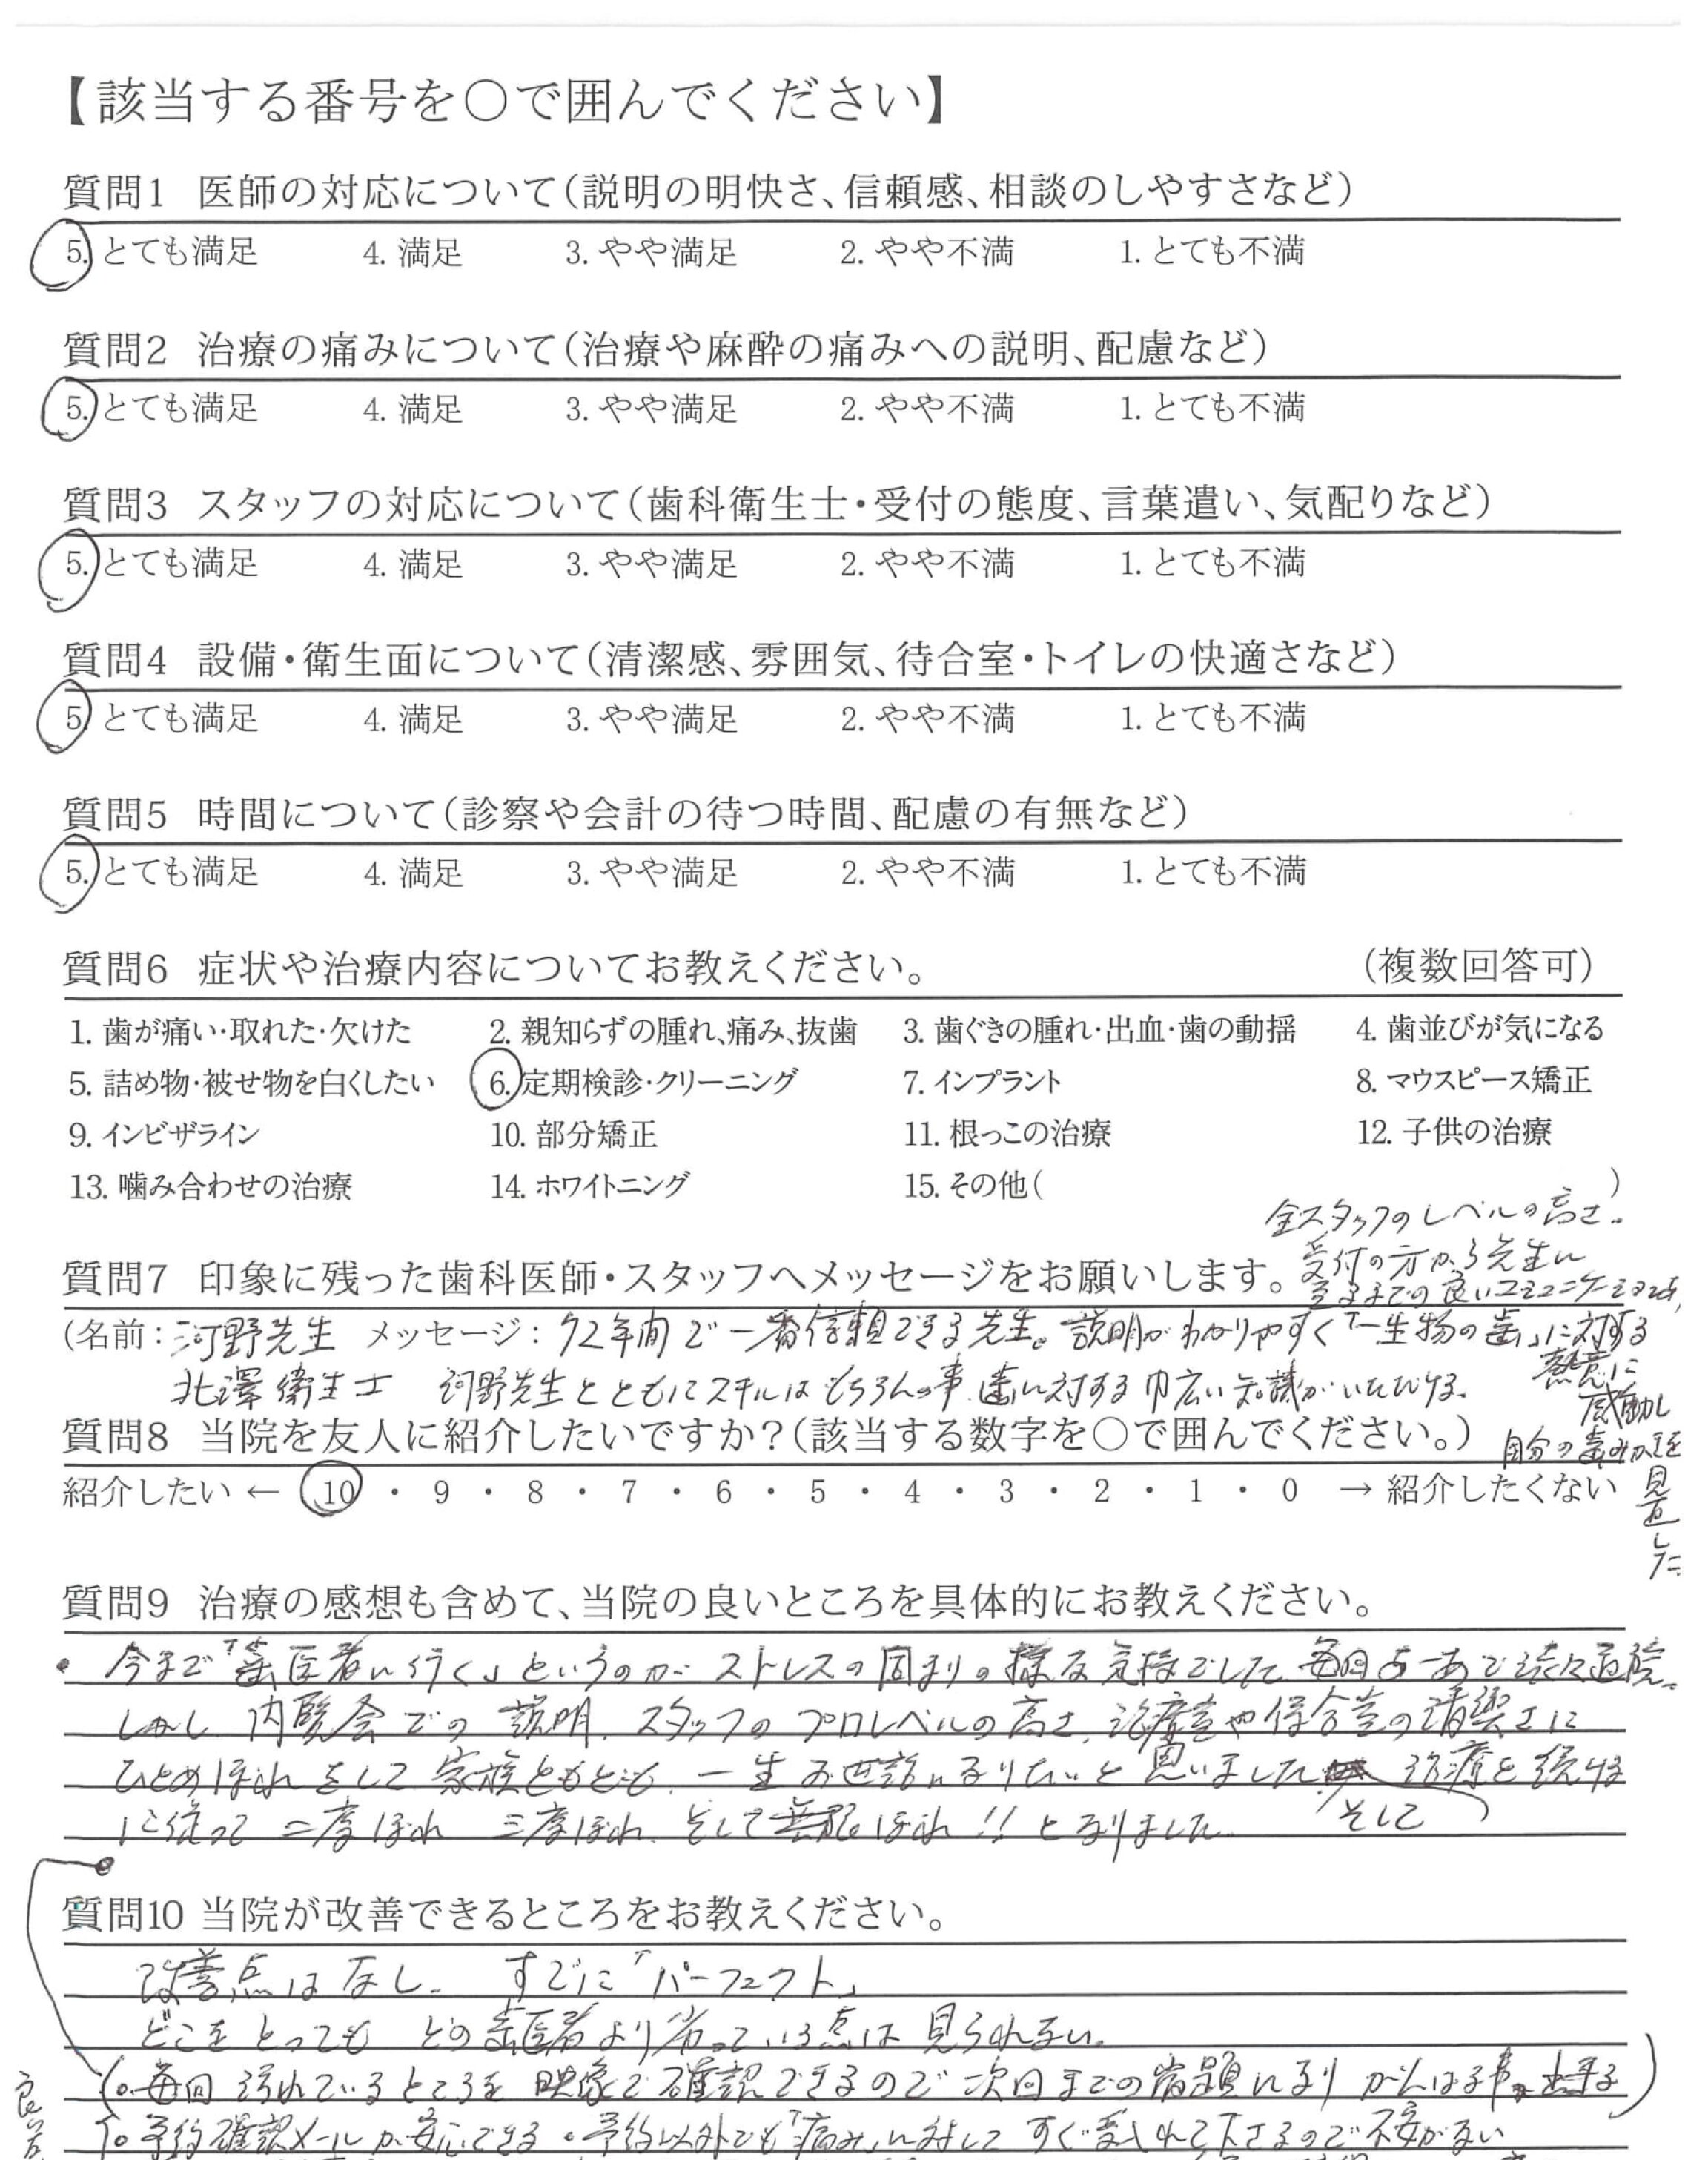 【該当する番号を〇で囲んでください】
質問1 医師の対応について(説明の明快さ、信頼感、相談のしやすさなど)
5. とても満足 4. 満足 3. やや満足 2. やや不満 1. とても不満
質問2 治療の痛みについて(治療や麻酔の痛みへの説明、配慮など)
5. とても満足 4. 満足 3. やや満足 2. やや不満 1. とても不満
質問3 スタッフの対応について(歯科衛生士・受付の態度、言葉遣い、気配りなど)
5. とても満足 4. 満足 3. やや満足 2. やや不満 1. とても不満
質問4 設備・衛生面について(清潔感、雰囲気、待合室・トイレの快適さなど)
5. とても満足 4. 満足 3. やや満足 2. やや不満 1. とても不満
質問5 時間について(診察や会計の待つ時間、配慮の有無など)
5. とても満足 4. 満足 3. やや満足 2. やや不満 1. とても不満
質問6 症状や治療内容についてお教えください。 (複数回答可)
1. 歯が痛い・取れた・欠けた 2. 親知らずの腫れ、痛み、抜歯 3. 歯ぐきの腫れ・出血・歯の動揺 4. 歯並びが気になる
5. 詰め物・被せ物を白くしたい 6. 定期検診・クリーニング 7. インプラント 8. マウスピース矯正
9. インビザライン 10. 部分矯正 11. 根っこの治療 12. 子供の治療
13. 噛み合わせの治療 14. ホワイトニング 15. その他( )
全スタッフのレベルの高さ。
受付の方から先生に
至るまでの良いコミュニケーション
質問7 印象に残った歯科医師・スタッフへメッセージをお願いします。
(名前: 河野先生 メッセージ: 72年間で一番信頼できる先生。説明がわかりやすく「一生物の歯」に対する
熱意に
感動し
自分の歯みがきを
見直した
北澤衛生士 河野先生とともにスキルはもちろんの事、歯に対する巾広い知識がいただける。
質問8 当院を友人に紹介したいですか?(該当する数字を〇で囲んでください。)
紹介したい ← 10 ・ 9 ・ 8 ・ 7 ・ 6 ・ 5 ・ 4 ・ 3 ・ 2 ・ 1 ・ 0 → 紹介したくない
質問9 治療の感想も含めて、当院の良いところを具体的にお教えください。
・今まで「歯医者に行く」というのがストレスの固まりの様な気持でして毎回
しかし内覧会での説明、スタッフのプロレベルの高さ、治療室や待合室の清潔さに
ひとめぼれをして家族ともども、一生お世話になりたいと思いました。そして治療を続ける
に従って二度ぼれ 三度ぼれ、そして ぼれ!!となりました。
質問10 当院が改善できるところをお教えください。
改善点はなし。 すでに「パーフェクト」
どこをとってもどの歯医者より劣っている点は見られない。
良い
(○毎回汚れているところを映像で確認できるので次回までの宿題になりがんばる事が出来る)
○予約確認メールが安心できる ・予約以外でも「痛み」に対してすぐ受入れて下さるので不安がない